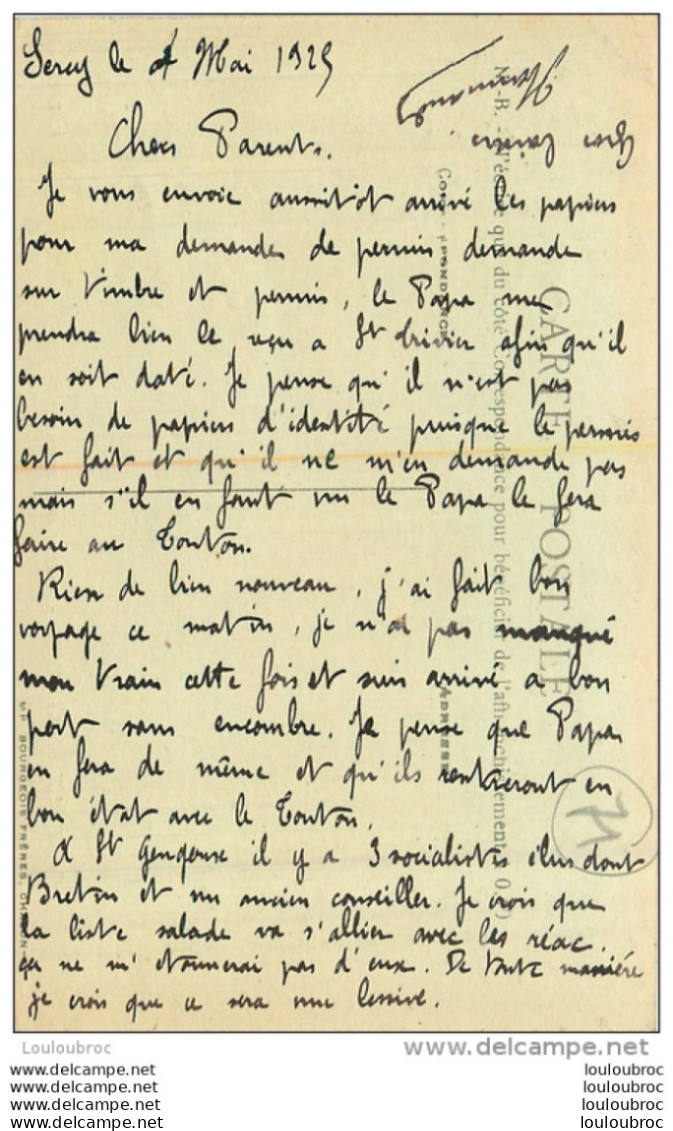 Sercy le 4 Mai 1925
Chers Parents.
Je vous envoie aussitôt arrivé les papiers
pour ma demande de permis demande
sur timbre et permis, le Papa me
prendra bien le reçu a St Trivier afin qu'il
en soit daté. Je pense qu'il n'est pas
besoin de papiers d'identité puisque le permis
est fait et qu'il ne m'en demande pas
mais s'il en faut un le Papa le fera
faire au Tonton.
Rien de bien nouveau, j'ai fait bon
voyage ce matin, je n'ai pas manqué
mon train cette fois et suis arrivé a bon
port sans encombre. Je pense que Papa
en fera de même et qu'ils rentreront en
bon état avec le Tonton.
A St Gengoux il y a 3 socialistes élus dont
Bretin et un ancien conseiller. Je crois que
la liste salade va s'allier avec les réac.
ça ne m'étonnerai pas d'eux. De toute manière
je crois que ce sera une lessive.
Gros baisers.
CARTE POSTALE
CORRESPONDANCE
ADRESSE
N.-B. - N'écrire que du côté Correspondance pour bénéficier de l'affranchissement à 0
BOURGEOIS FRÈRES, CHALON
71
Louloubroc
www.delcampe.net
www.delcampe.net
www.delcampe.net
www.delcampe.net
www.delcampe.net
louloubroc
louloubroc
louloubroc
louloubroc